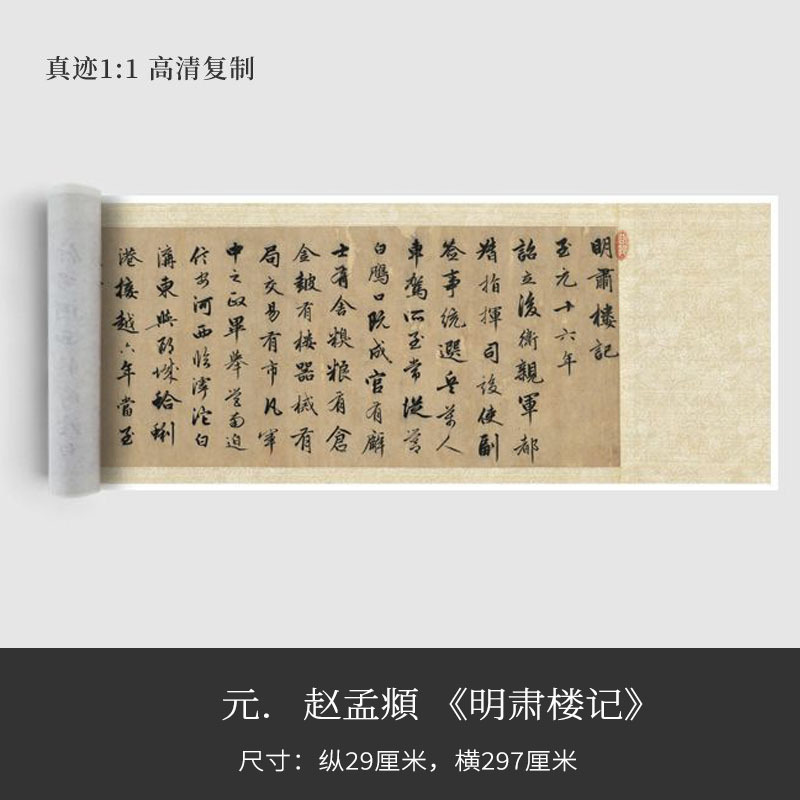 真迹1:1 高清复制
明肅樓記
至元十六年
詔立後衛親軍都
指揮司設使副
簽事統選兵萬人
車駕所至常從營
白鴈口既成官有廨
士有舍糗粮有倉
金鼓有樓器械有
局交易有市凡軍
中之政畢舉營南迫
信安河西臨滹沱白
溝東與郎城蛤蜊
港接越六年當至
元. 赵孟頫 《明肃楼记》
尺寸：纵29厘米，横297厘米